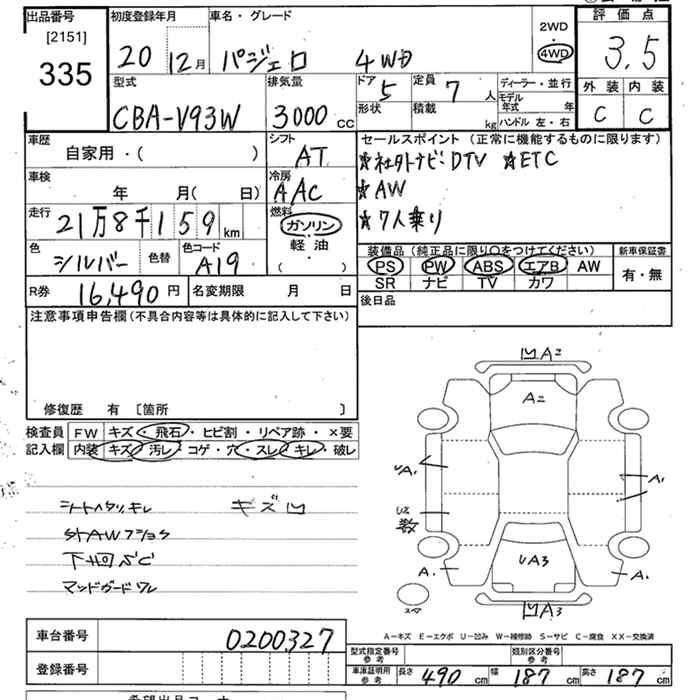 出品番号
[2151]
335
初度登録年月
20 12月
車名・グレード
パジェロ 4WD
2WD
4WD
評価点
3.5
外装 内装
C C
型式
CBA-V93W
排気量
3000 cc
ドア
5
定員
7 人
形状
積載
kg
ディーラー・並行
モデル年式 年
ハンドル 左・右
車歴
自家用・( )
シフト
AT
セールスポイント(正常に機能するものに限ります)
★社外ナビ・DTV ★ETC
★AW
★7人乗り
車検
年 月( 日)
冷房
AAC
走行
21万8千159km
燃料
ガソリン
軽油
( )
色
シルバー
色替
色コード
A19
装備品(純正品に限り○をつけてください)
PS PW ABS エアB AW
SR ナビ TV カワ
新車保証書
有・無
R券
16,490円
名変期限 月 日
後日品
注意事項申告欄(不具合内容等は具体的に記入して下さい)
修復歴 有 〔箇所 〕
検査員記入欄
FW キズ・飛石・ヒビ割・リペア跡・×要
内装 キズ・汚レ・コゲ・穴・スレ・キレ・破レ
シートヘタリ・キレ
キズ凹
下回S・C
マッドガードワレ
凹A2
A2
A1
UA1
U2
数
UA3
A1
A1
凹A3
スペア
A-キズ E-エクボ U-凹み W-補修跡 S-サビ C-腐食 XX-交換済
車台番号
0200327
登録番号
型式指定番号 参考
類別区分番号 参考
車庫証明用 参考
長さ 490 cm 幅 187 cm 高さ 187 cm